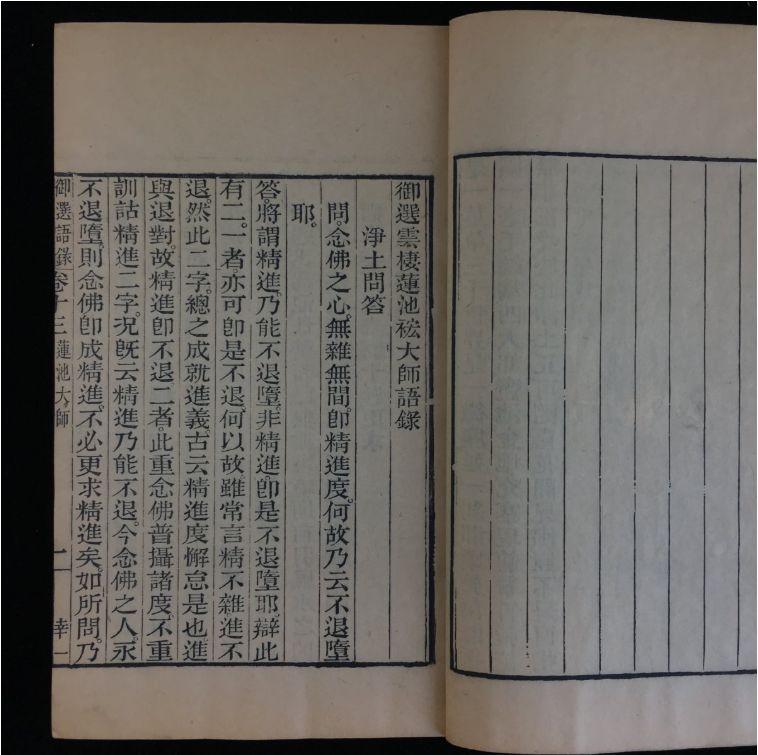 御選雲棲蓮池袾大師語錄
淨土問答
問。念佛之心。無雜無間。卽精進度。何故乃云不退墮
耶。
答。將謂精進。乃能不退墮。非精進。卽是不退墮耶。辯此
有二。一者。亦可卽是不退。何以故。雖常言精不雜進不
退。然此二字。總之成就進義。古云精進度懈怠是也。進
與退對。故精進卽不退。二者。此重念佛普攝諸度。不重
訓詁精進二字。况旣云精進乃能不退。今念佛之人。永
不退墮。則念佛卽成精進。不必更求精進矣。如所問。乃
御選語錄 卷十三 蓮池大師 二 幸一